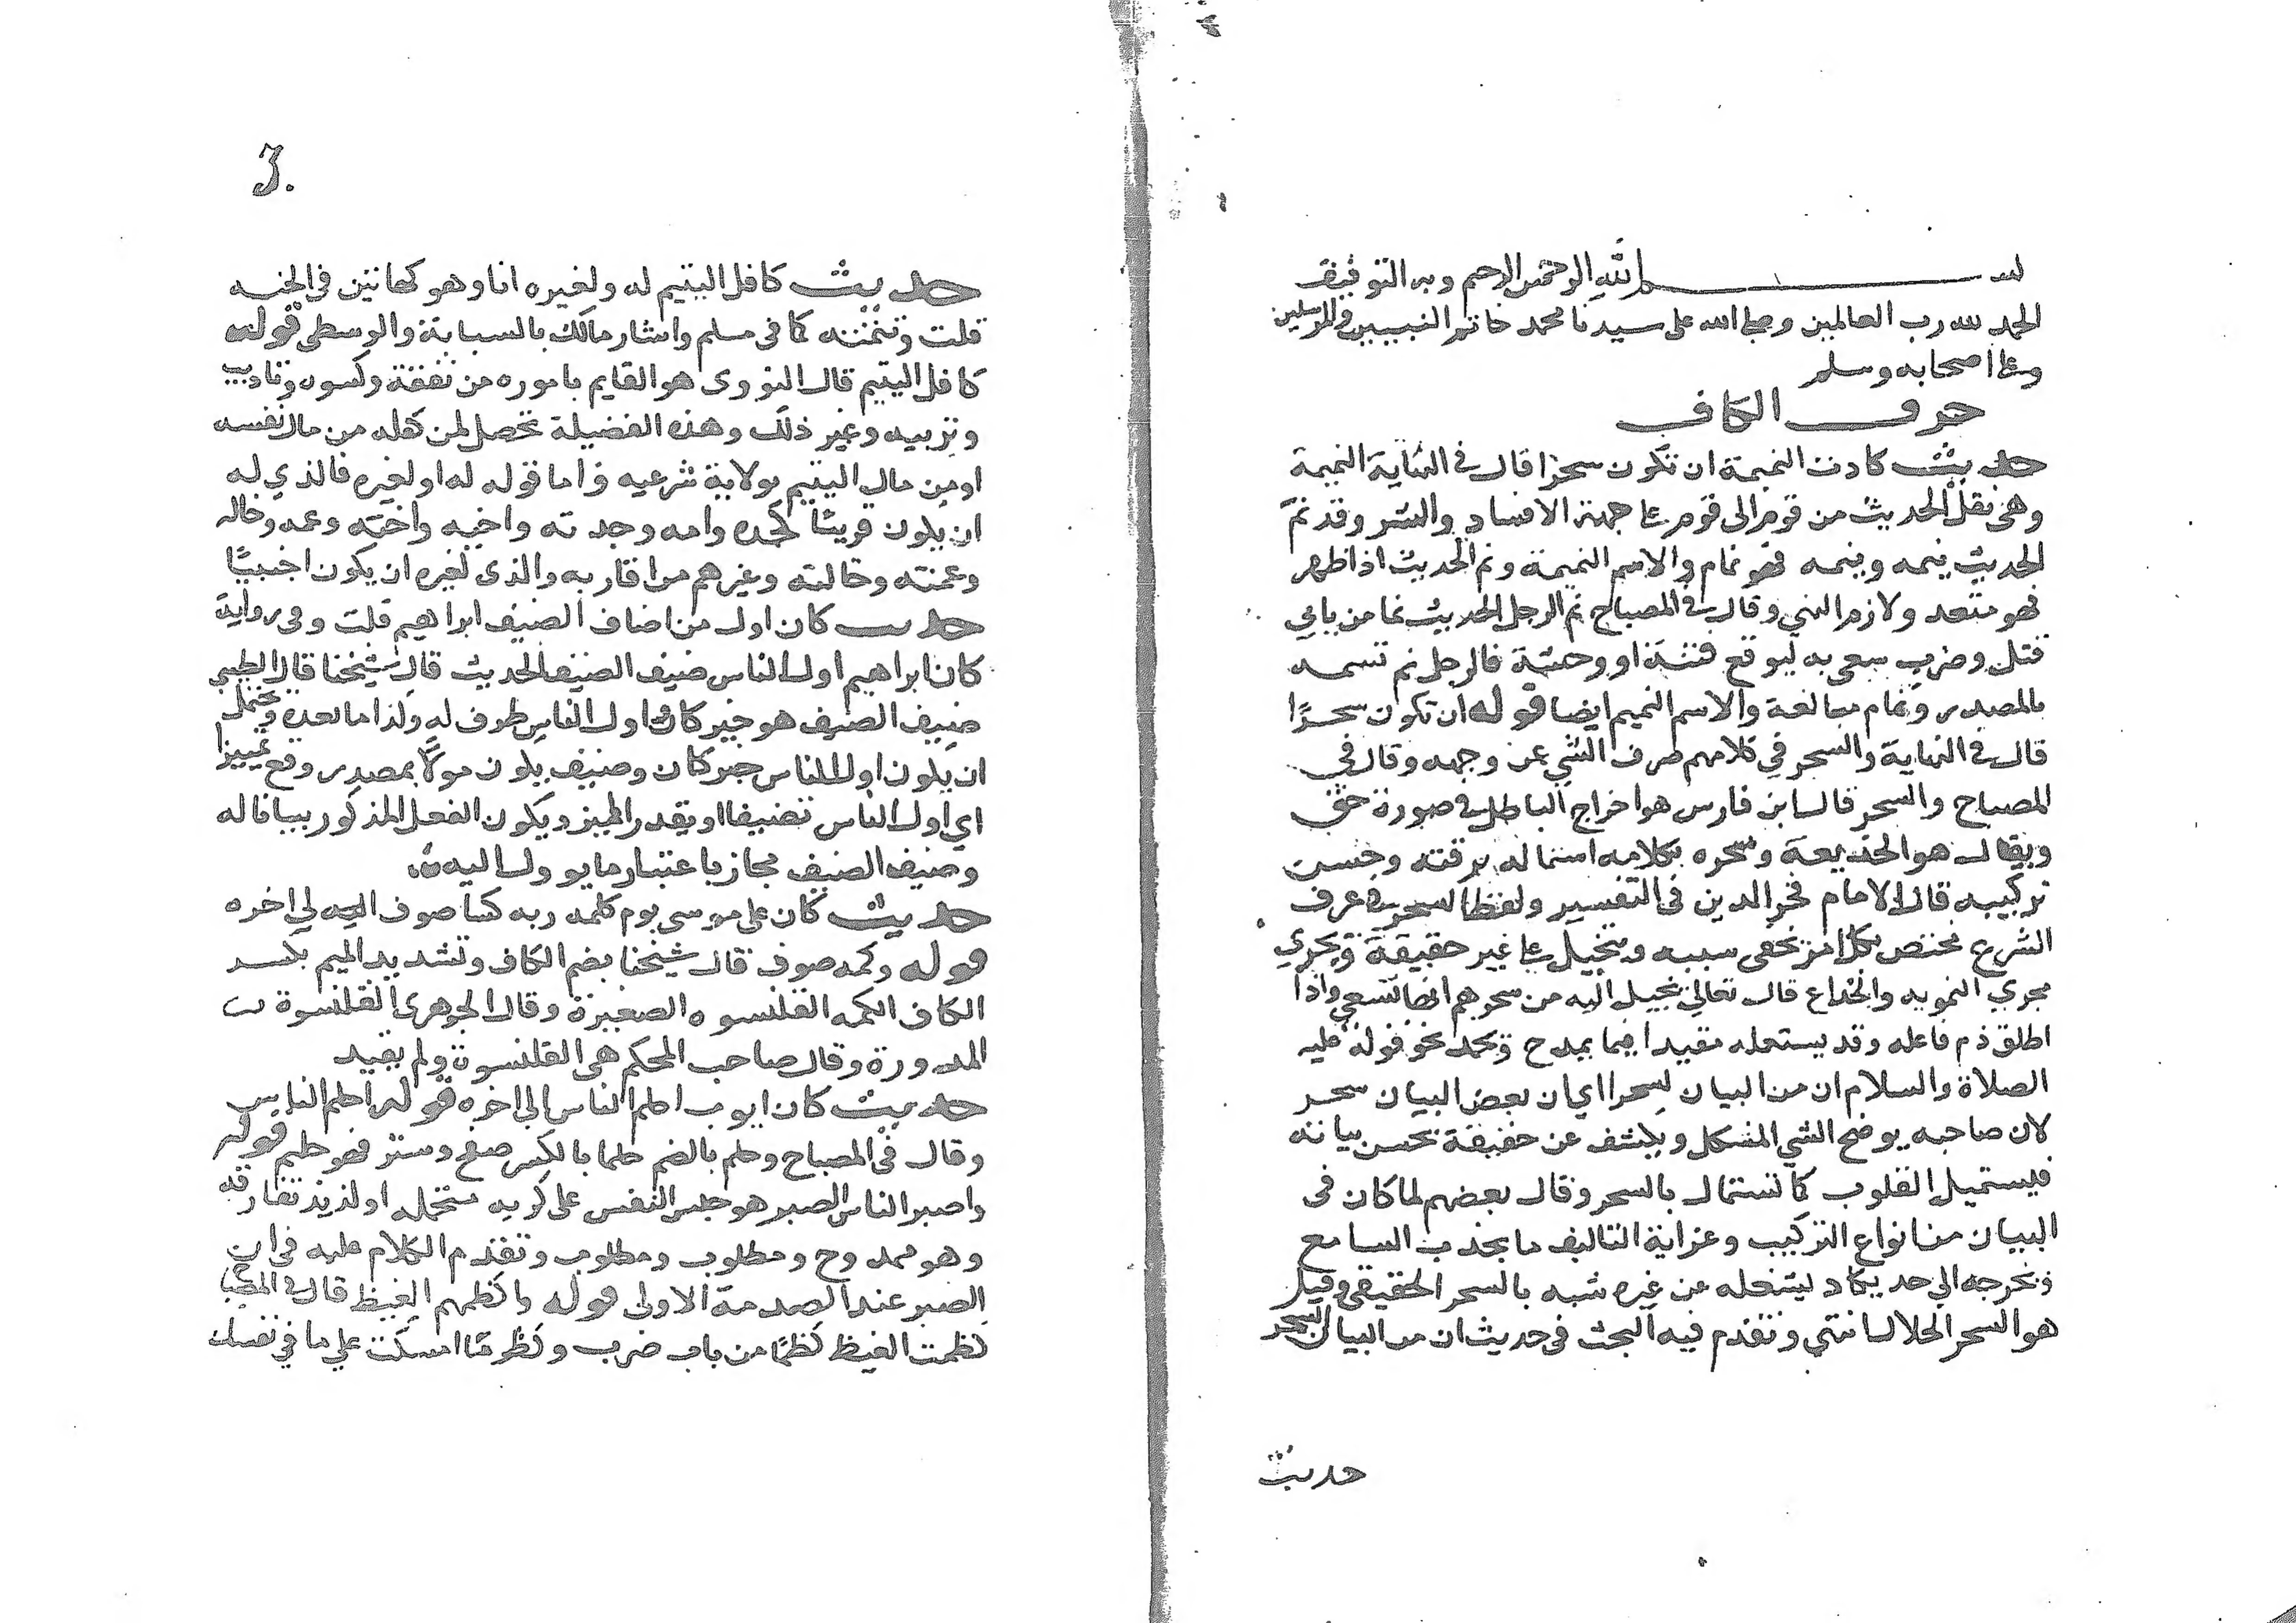 بسم الله الرحمن الرحيم وبه التوفيق
الحمد لله رب العالمين وصلى الله على سيدنا محمد خاتم النبيين والمرسلين
وعلى اصحابه وسلم
حرف الكاف
حديث كادت النميمة ان تكون سحرا قال في النهاية النميمة
وهي نقل الحديث من قوم الى قوم على جهة الافساد والشر وقد نمّ
الحديث ينمه وينمه فهو نمام والاسم النميمة ونم الحديث اذا ظهر
فهو متعد ولازم انتهي وقال في المصباح نم الرجل الحديث نما من بابي
قتل وضرب سعى به ليوقع فتنة او وحشة فالرجل نم تسمه
بالمصدر ونمام مبالغة والاسم النميم ايضا قوله ان تكون سحرًا
قال في النهاية والسحر في كلامهم صرف الشي عن وجهه وقال في
المصباح والسحر قال ابن فارس هو اخراج الباطل في صورة حق
ويقال هو الخديعة وسحره بكلامه استماله برقته وحسن
تركيبه قال الامام فخر الدين في التفسير ولفظ السحر في عرف
الشرع مختص بكل امر يخفى سببه ويتخيل على غير حقيقة ويجري
مجري التمويه والخداع قال تعالي يخيل اليه من سحرهم انها تسعي واذا
اطلق ذم فاعله وقد يستعمله مقيدا فيما يمدح ويحمد نحو قوله عليه
الصلاة والسلام ان من البيان لسحرا اي ان بعض البيان سحر
لان صاحبه يوضح الشي المشكل ويكشف عن حقيقة بحسن بيانه
فيستميل القلوب كما تستمال بالسحر وقال بعضهم لما كان في
البيان من انواع التركيب وغرابة التاليف ما يجذب السامع
ويخرجه الي حد يكاد يشغله عن غيره شبه بالسحر الحقيقي وقيل
هو السحر الحلال انتهي وتقدم فيه البحث في حديث ان من البيان السحر
حديث
3.
حديث كافل اليتيم له ولغيره انا وهو كهاتين في الجنه
قلت وتتمته كما في مسلم واشار مالك بالسبابة والوسطى قوله
كافل اليتيم قال النووى هو القايم باموره من نفقة وكسوه وتاديب
وتربيه وغير ذلك وهذه الفضيلة تحصل لمن كفله من مال نفسه
او من مال اليتيم بولاية شرعيه واما قوله له او لغيره فالذي له
ان يكون قريبًا كجده وامه وجدته واخيه واخته وعمه وخاله
وعمته وخالته وغيرهم من اقاربه والذى لغيره ان يكون اجنبيًا
حديث كان اول من اضاف الضيف ابراهيم قلت وفي رواية
كان ابراهيم اول الناس ضيف الضيف الحديث قال شيخنا قال الطيبي
ضيف الضيف هو خبر كان واول الناس ظرف له ولذا ما بعده ويحتمل
ان يكون اول الناس خبر كان وضيف يكون مولا بمصدر وقع تمييزا
اي اول الناس تضييفا او يقدر المميز ويكون الفعل المذكور بيانا له
وضيف الضيف مجاز باعتبار ما يوول اليه
حديث كان على موسى يوم كلمه ربه كسا صوف اليه الي اخره
قوله وكمه صوف قال شيخنا بضم الكاف وتشديد الميم بكسر
الكاف الكمه القلنسوه الصغيرة وقال الجوهرى القلنسوة
المدورة وقال صاحب المحكم هي القلنسوة ولم يقيد
حديث كان ايوب احلم الناس الى اخره قوله احلم الناس
وقال في المصباح وحلم بالضم حلما بالكسر صفح وستر فهو حليم قوله
واصبر الناس الصبر هو حبس النفس على كريه تتحمله او لذيذ تفارقه
وهو ممدوح ومطلوب ومطلوب وتقدم الكلام عليه في ان
الصبر عند الصدمة الاولى قوله واكظمهم الغيظ قال في المصباح
كظمت الغيظ كظمًا من باب ضرب وكظومًا امسكت علي ما في نفسك